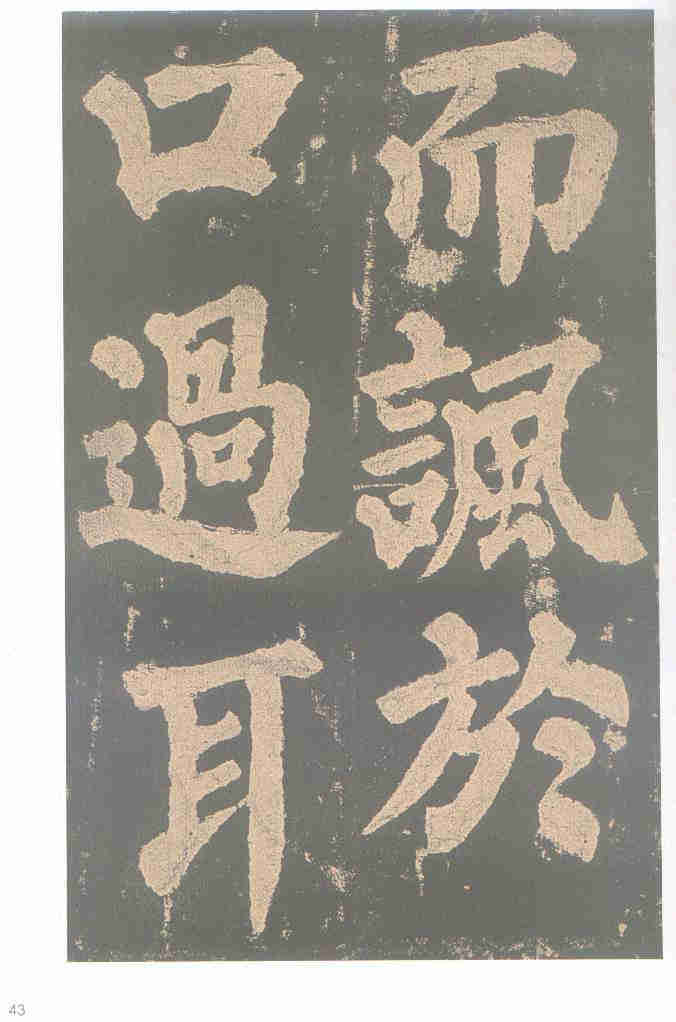 而諷於
口過耳
43